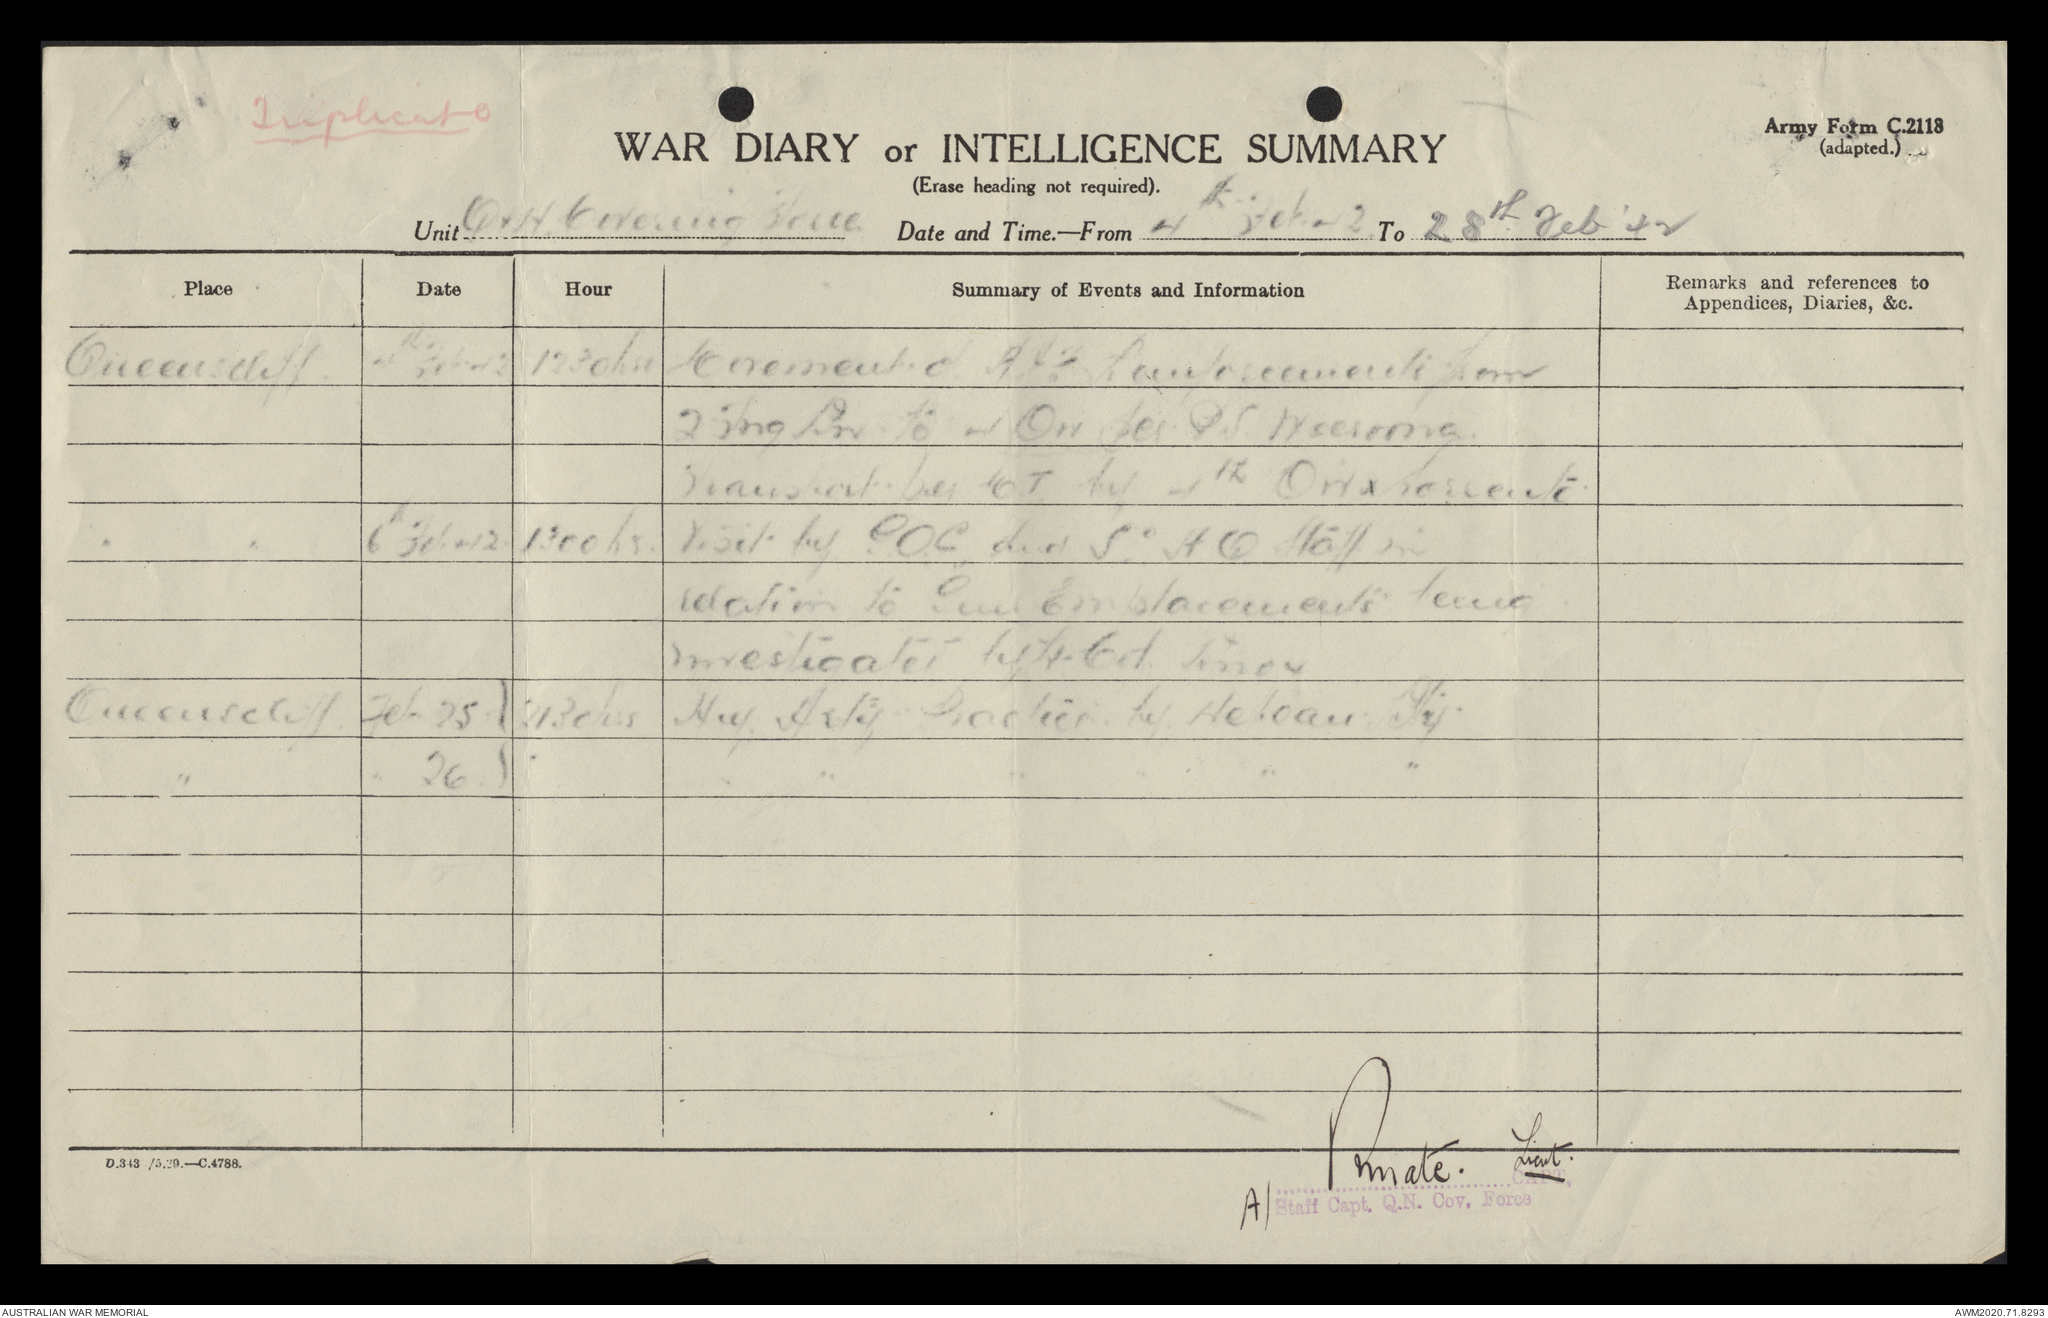 Triplicate
Army Form C.2118
(adapted.)
WAR DIARY or INTELLIGENCE SUMMARY
(Erase heading not required).
Unit Q.N. Covering Force Date and Time.—From 4th Feb. 42 To 28th Feb '42
Place Date Hour Summary of Events and Information Remarks and references to
Appendices, Diaries, &c.
Queenscliff. 4th Feb 42 1230hrs Movement of Reinforcements from
to 4 per P.S. Weeroona.
Transport per M.T. by 4th
" " 6th Feb 42 1300hrs. Visit by G.O.C. and HQ Staff in
relation to Gun Emplacements being
investigated by Lt. Col. Knox
Queenscliff Feb 25 } 2130hrs Hvy. Arty. Practice by Nepean Bty.
" " 26 } " " " " " " "
D.343 /5.39.—C.4788.
Lieut.
CAPT,
A/ Staff Capt. Q.N. Cov. Force
AUSTRALIAN WAR MEMORIAL AWM2020.71.8293